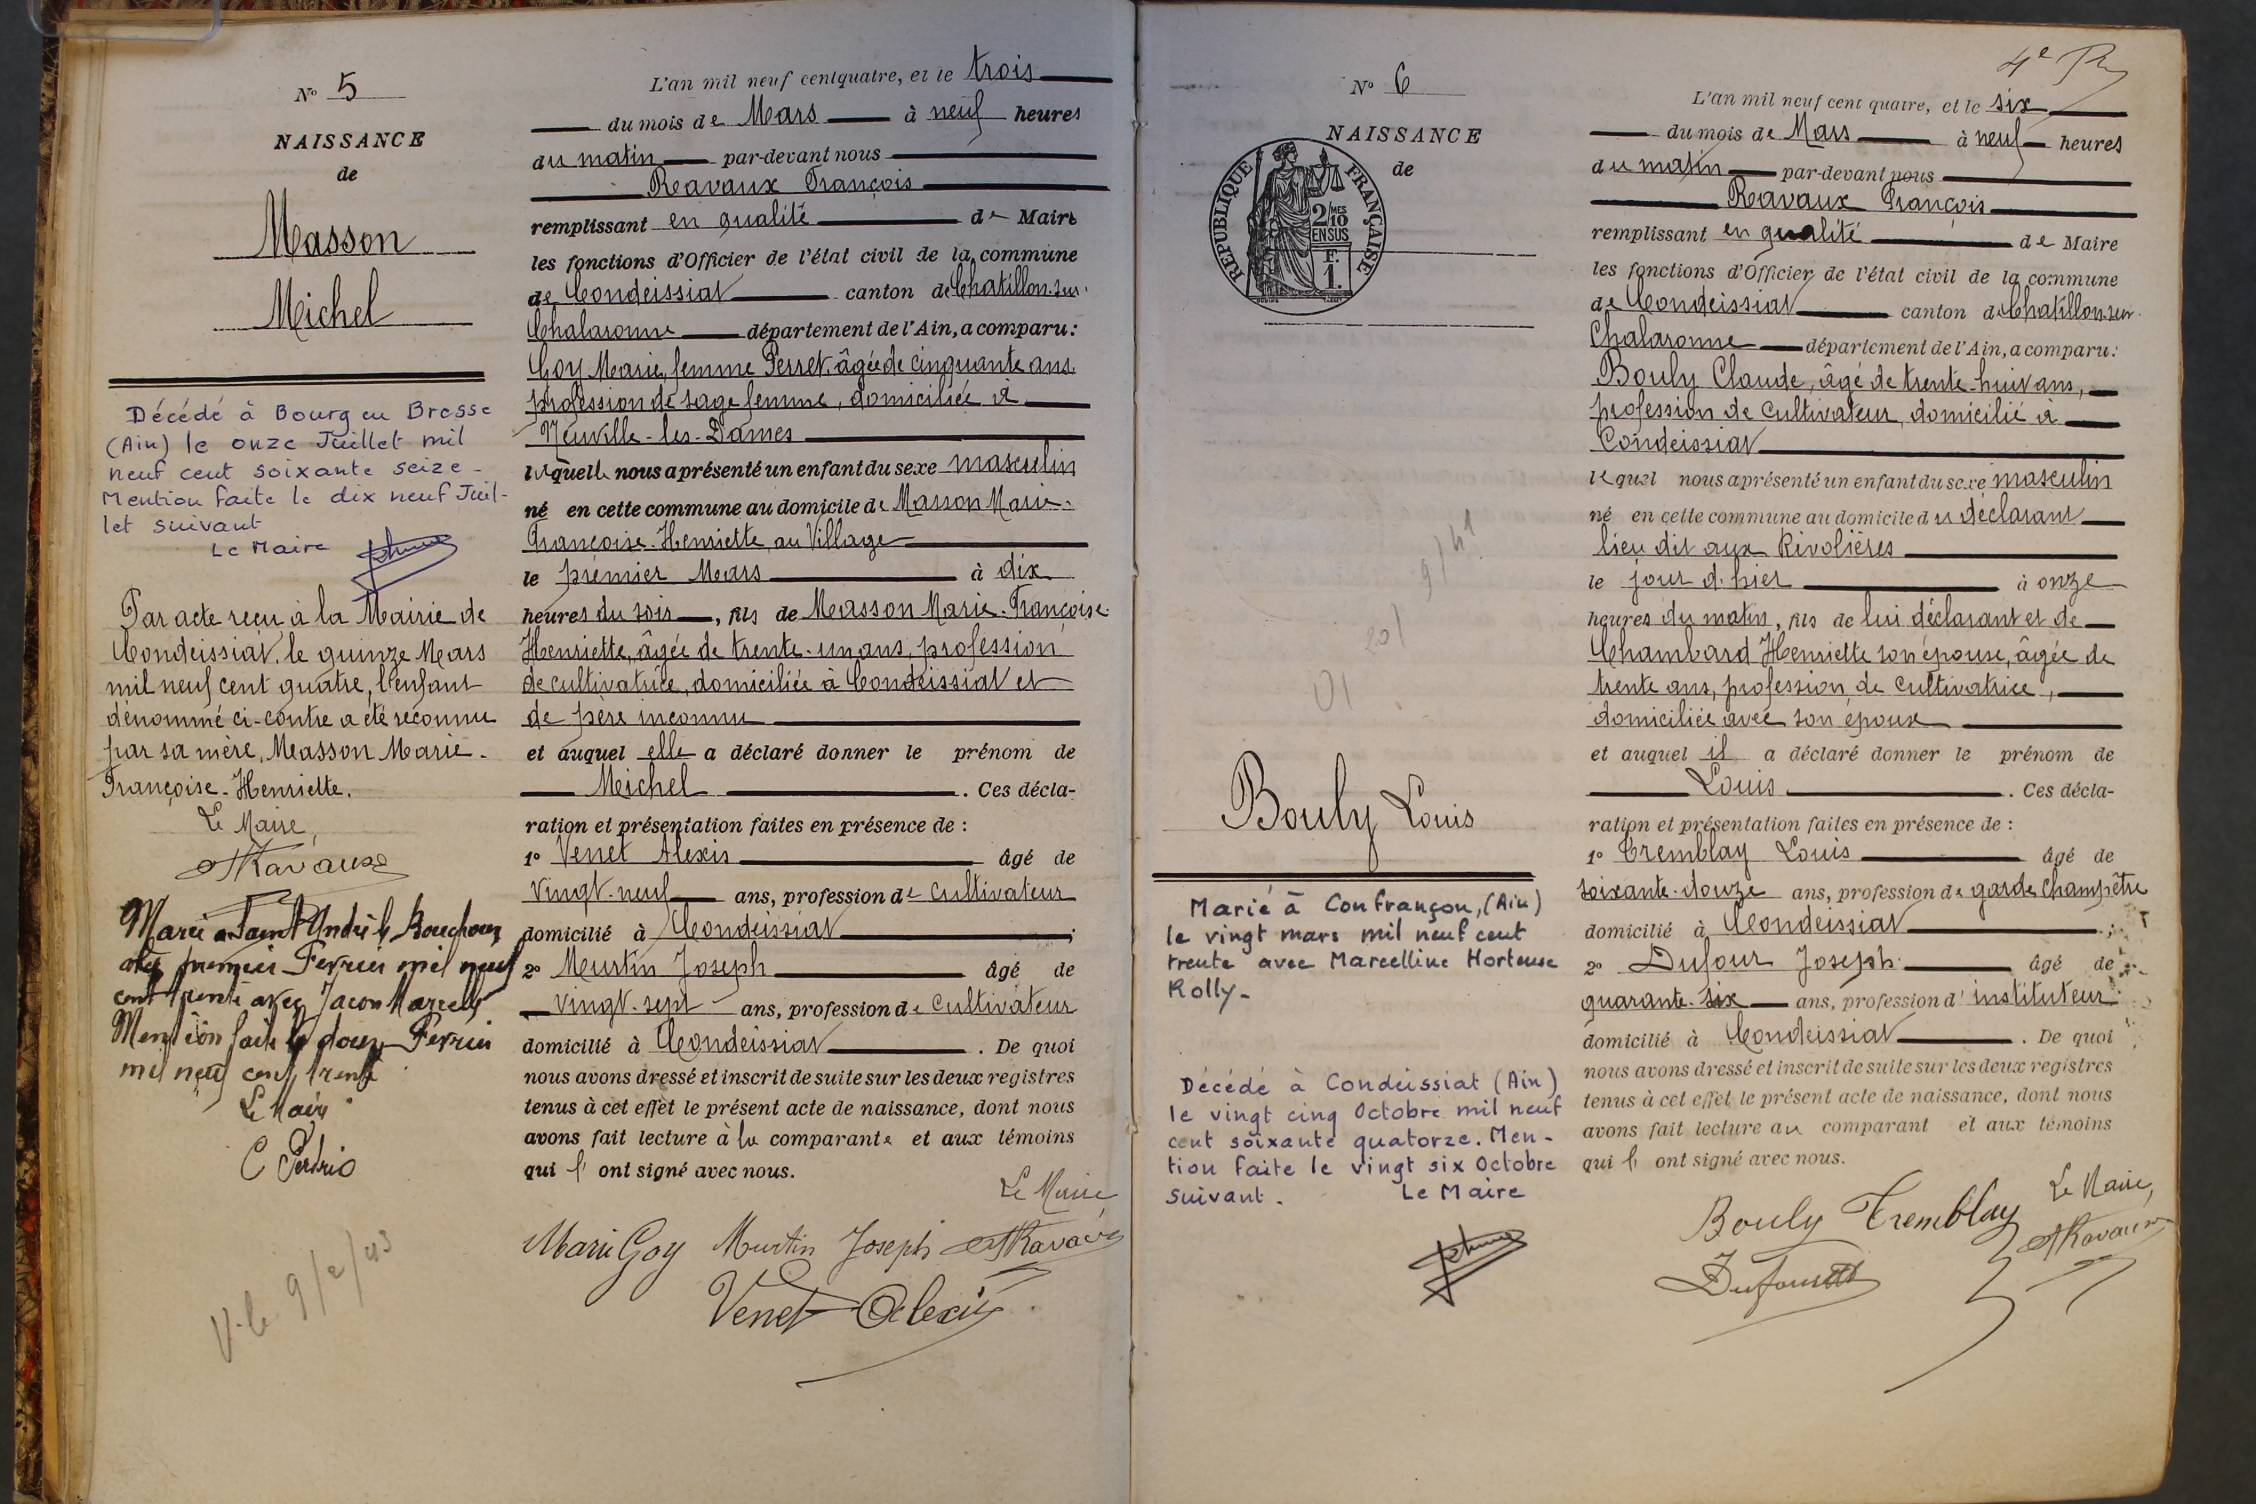 No 5
NAISSANCE
de
Masson
Michel
Décédé à Bourg en Bresse
(Ain) le onze Juillet mil
neuf cent soixante seize -
Mention faite le dix neuf Juil-
let suivant
Le Maire
Par acte reçu à la Mairie de
Condeissiat, le quinze Mars
mil neuf cent quatre, l'enfant
dénommé ci-contre a été reconnu
par sa mère, Masson Marie-
Françoise-Henriette.
Le Maire,
Ravaux
Marié à Saint André le Bouchoux
le premier Fevrier mil neuf
cent trente avec Jacon Marcelle
Mention faite le douze Fevrier
mil neuf cent trente
Le Maire
V. le 9/2/43
L'an mil neuf cent quatre, et le trois
du mois de Mars à neuf heures
du matin par-devant nous
Ravaux François
remplissant en qualité de Maire
les fonctions d'Officier de l'état civil de la commune
de Condeissiat canton de Chatillon-sur-
Chalaronne département de l'Ain, a comparu:
Goy Marie, femme Perret, âgée de cinquante ans,
profession de sage femme, domiciliée à
Neuville-les-Dames
laquelle nous a présenté un enfant du sexe masculin
né en cette commune au domicile de Masson Marie-
Françoise-Henriette, au Village
le premier Mars à dix
heures du soir, fils de Masson Marie-Françoise-
Henriette, âgée de trente-un ans, profession
de cultivatrice, domiciliée à Condeissiat et
de père inconnu
et auquel elle a déclaré donner le prénom de
Michel. Ces décla-
ration et présentation faites en présence de :
1o Venet Alexis âgé de
vingt-neuf ans, profession de cultivateur
domicilié à Condeissiat;
2o Murtin Joseph âgé de
vingt-sept ans, profession de cultivateur
domicilié à Condeissiat. De quoi
nous avons dressé et inscrit de suite sur les deux registres
tenus à cet effet le présent acte de naissance, dont nous
avons fait lecture à la comparante et aux témoins
qui l' ont signé avec nous.
Le Maire
Marie Goy Murtin Joseph Ravaux
Venet Alexis
4e
No 6
NAISSANCE
de
REPUBLIQUE FRANÇAISE
2/10 MES
EN SUS
F.
1.
Bouly Louis
Marié à Confrançon, (Ain)
le vingt mars mil neuf cent
trente avec Marcelline Hortense
Rolly-
Décédé à Condeissiat (Ain)
le vingt cinq Octobre mil neuf
cent soixante quatorze. Men-
tion faite le vingt six Octobre
suivant.
Le Maire
L'an mil neuf cent quatre, et le six
du mois de Mars à neuf heures
du matin par-devant nous
Ravaux François
remplissant en qualité de Maire
les fonctions d'Officier de l'état civil de la commune
de Condeissiat canton de Chatillon-sur-
Chalaronne département de l'Ain, a comparu:
Bouly Claude, âgé de trente-huit ans,
profession de cultivateur, domicilié à
Condeissiat
lequel nous a présenté un enfant du sexe masculin
né en cette commune au domicile du déclarant
lieu dit aux Rivolières
le jour d'hier à onze
heures du matin, fils de lui déclarant et de
Chambard Henriette son épouse, âgée de
trente ans, profession de cultivatrice,
domiciliée avec son époux
et auquel il a déclaré donner le prénom de
Louis. Ces décla-
ration et présentation faites en présence de :
1o Tremblay Louis âgé de
soixante-douze ans, profession de garde champêtre
domicilié à Condeissiat;
2o Dufour Joseph âgé de
quarante-six ans, profession d'instituteur
domicilié à Condeissiat. De quoi
nous avons dressé et inscrit de suite sur les deux registres
tenus à cet effet le présent acte de naissance, dont nous
avons fait lecture au comparant et aux témoins
qui l' ont signé avec nous.
Le Maire,
Bouly Tremblay Ravaux
Dufour